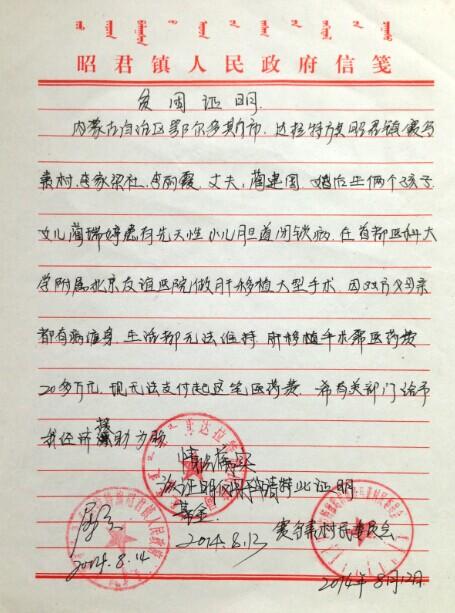 昭君镇人民政府信笺
贫困证明
内蒙古自治区鄂尔多斯市、达拉特旗昭君镇赛乌
素村、李家梁社、李丽霞、丈夫、蔺建国、婚后生俩个孩子
女儿蔺瑞婷患有先天性小儿胆道闭锁病、在首都医科大
学附属北京友谊医院做肝移植大型手术、因双方父母亲
都有病缠身、生活都无法维持、肝移植手术需医药费
20多万元、现无法支付起这笔医药费、希有关部门给予
我经济救助为盼
情况属实
此证明仅限申请特此证明
基金
2014.8.13
赛乌素村民委员会
2014.8.14
2014年8月12日